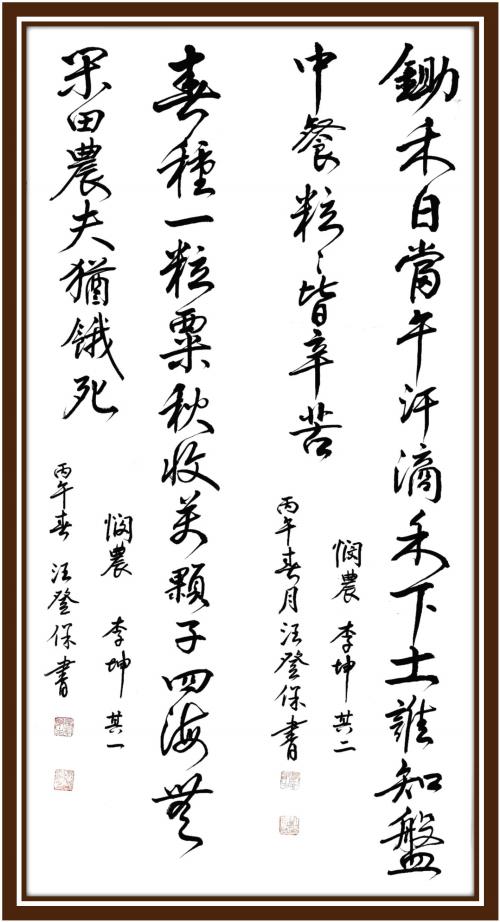 鋤禾日當午汗滴禾下土誰知盤
中餐粒〻皆辛苦
憫農 李坤 其二
丙午春月汪登保書
春種一粒粟秋收萬顆子四海無
閑田農夫猶餓死
憫農 李坤 其一
丙午春 汪登保書